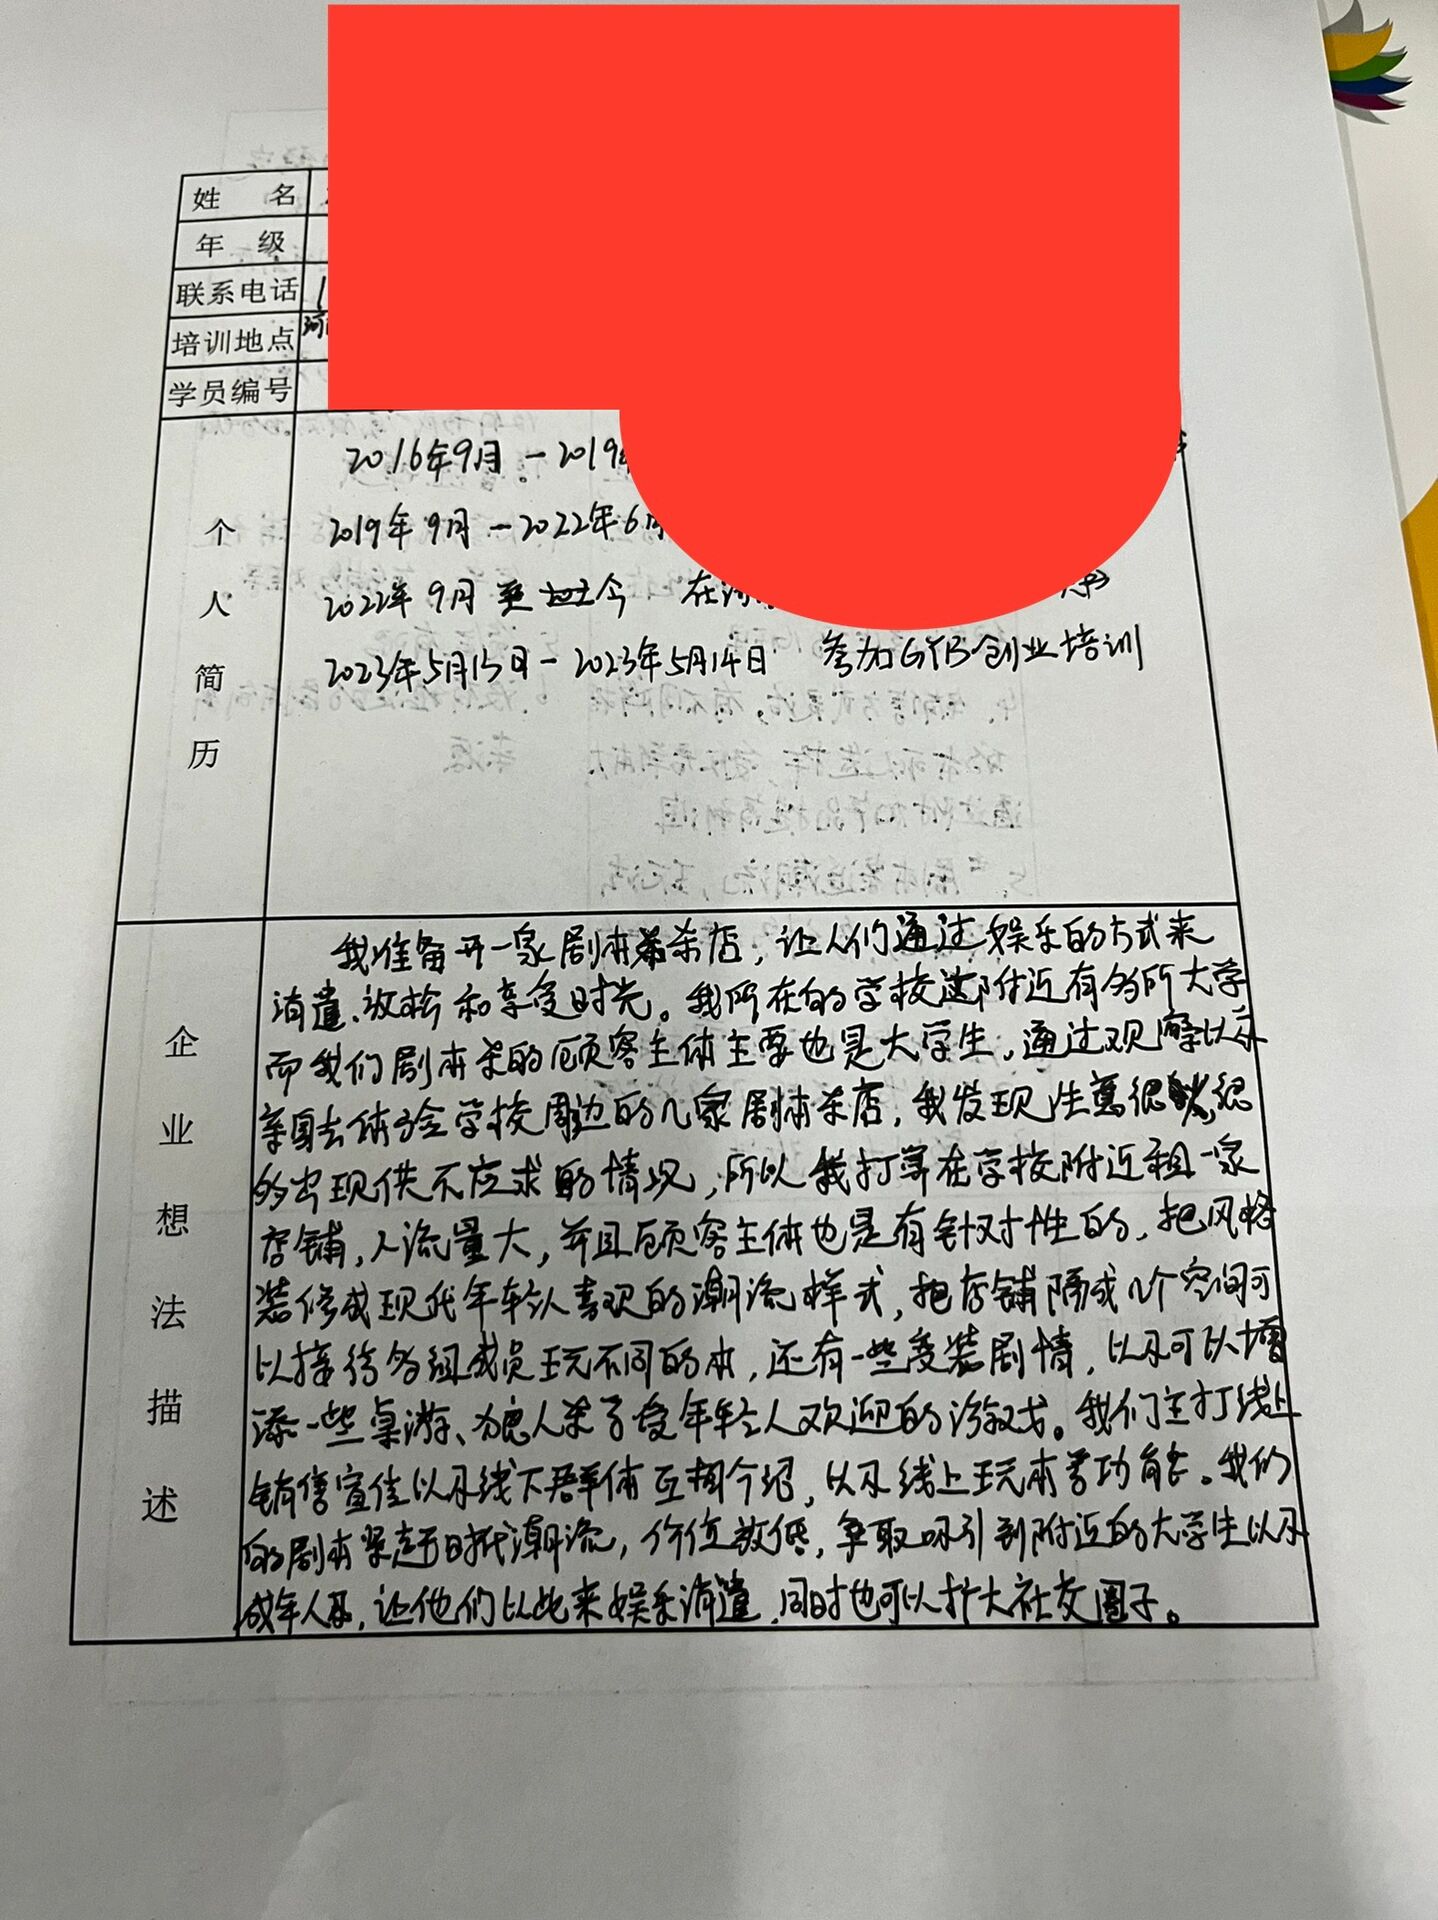 姓 名
年 级
联系电话 1
培训地点 河
学员编号
个人简历
2016年9月-2019
2019年9月-2022年6月
2022年9月至今 在河
2023年5月13日-2023年5月14日 参加GYB创业培训
企业想法描述
我准备开一家剧本杀店,让人们通过娱乐的方式来
消遣、放松和享受时光。我所在的学校附近有多所大学
而我们剧本杀的顾客主体主要也是大学生,通过观摩以及
亲身去体验学校周边的几家剧本杀店,我发现生意很火,总
的出现供不应求的情况,所以我打算在学校附近租一家
店铺,人流量大,并且顾客主体也是有针对性的,把风格
装修成现代年轻人喜欢的潮流样式,把店铺隔成几个空间可
以接待多组成员玩不同的本,还有一些变装剧情,以及可以增
添一些桌游、狼人杀等受年轻人欢迎的游戏。我们主打线上
销售宣传以及线下群体互相介绍,以及线上玩本等功能。我们
的剧本紧趋时代潮流,价位较低,争取吸引到附近的大学生以及
成年人,让他们以此来娱乐消遣,同时也可以扩大社交圈子。